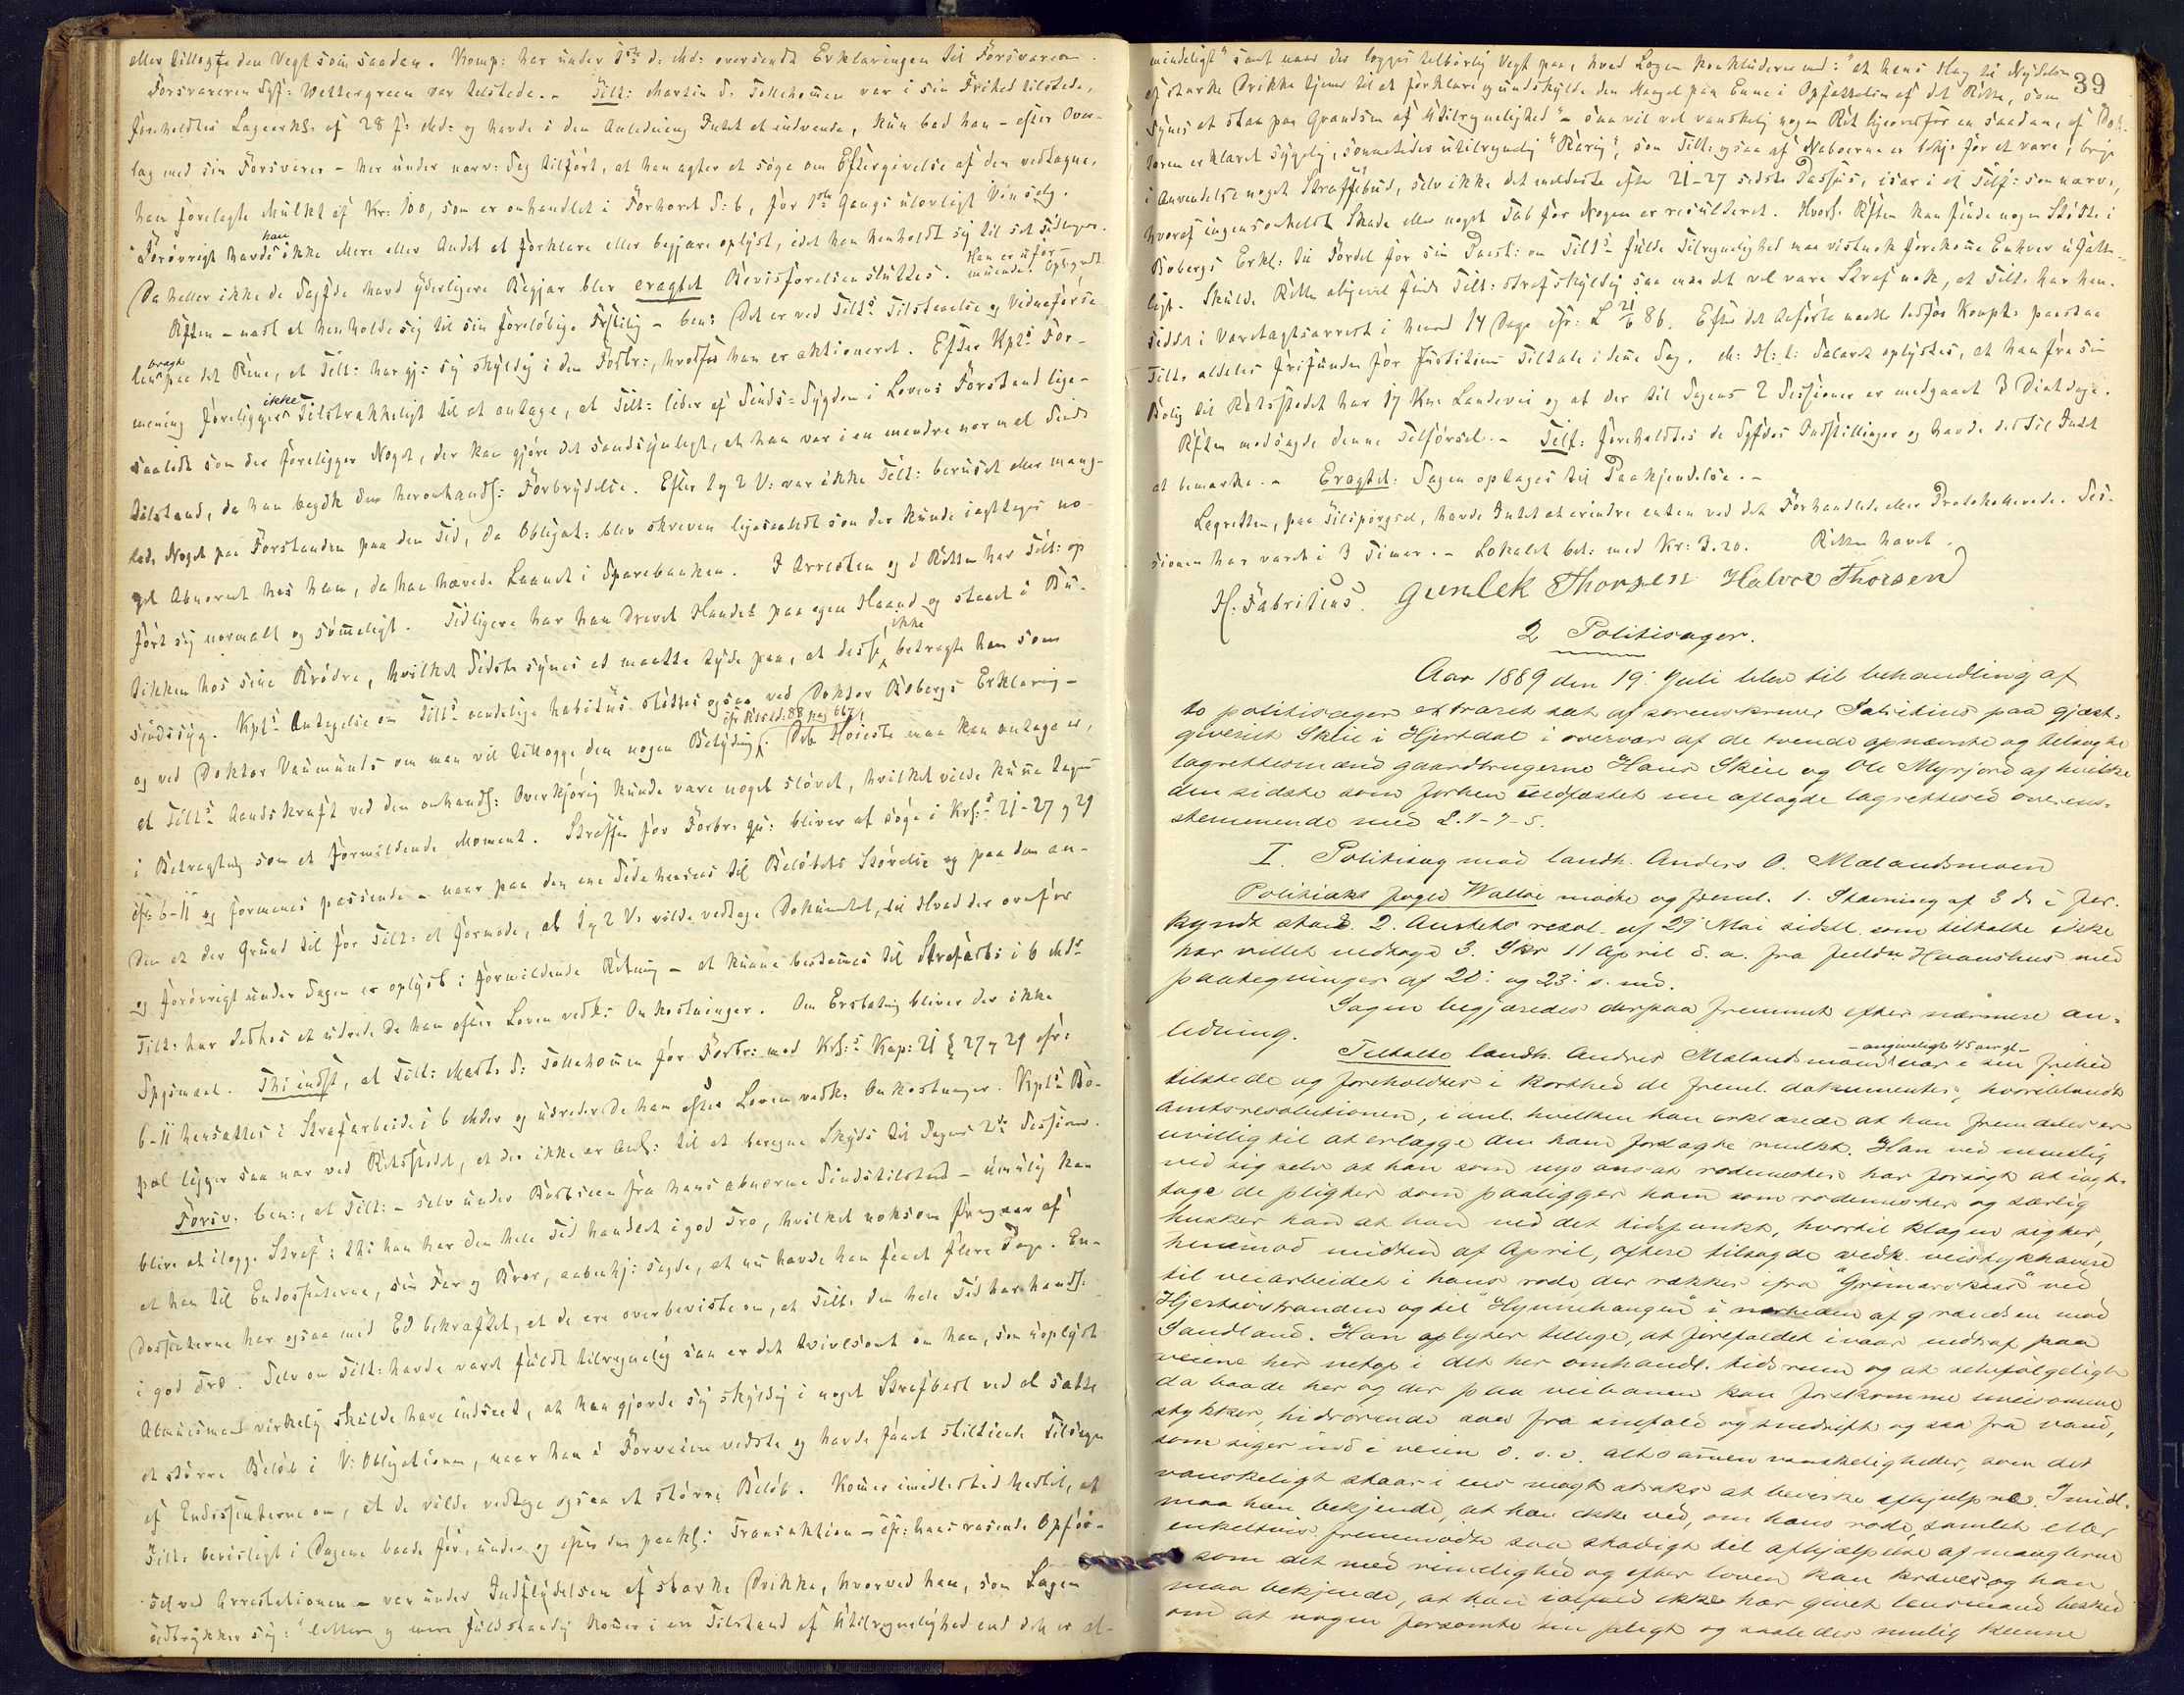 eller tillagte den Vegt som saadan. Komp: har under 1ste d: Md: oversendt Erklæringen til Forsvareren.
Forsvareren Sgf: Wettergreen var tilstede. - Tilt: Martin S. Tollehomen var i sin Frihed tilstede,
foreholdtes Lageerkl. af 28 f: Md: og havde i den Anledning Intet at indvende, kun bad han - efter Over-
lag med sin Forsvarer - her under nærv: Sag tilført, at han agter at søge om Eftergivelse af den vedtagne,
ham forelagte Mulkt af Kr: 100, som er omhandlet i Forhøret S: 6, for 1ste Gangs ulovligt Vinsalg.
Forøvrigt havde han ikke Mere eller Andet at forklare eller begjære oplyst, idet han henholdt sig til sit Tidligere.
Da heller ikke de Sagfde havd yderligere Begjær blev eragtet Bevisførelsen sluttet. Han er ufor- muende. Oplæst
Akten - næst at henholde sig til sin foreløbige Frstillg - bem: Det er ved Tilts Tilstaaelse og Vidneførse-
len bragt paa det Rene, at Tilt: har gj: sig skyldig i den Forbr:, hvorfor han er aktioneret. Efter Kpts For-
mening foreligger ikke Tilstrækkeligt til at antage, at Tilt: lider af Sinds-Sygdom i Lovens Forstand lige-
saalidt som der foreligger Noget, der kan gjøre det sandsynligt, at han var i en mindre normal Sinds
tilstand, da han begik den heromhandl: Forbrydelse. Efter 1 og 2 V: var ikke Tilt: beruset eller mang-
lede Noget paa Forstanden paa den Tid, da Obligat: blev skreven ligesaalidt som der kunde iagttages no-
get Abnormt hos ham, da han hævede Laanet i Sparebanken. I Arresten og i Retten har Tilt: op
ført sig normalt og sømmeligt. Tidligere har han drevet Handel paa egen Haand og staaet i Bu-
tikken hos sine Brødre, hvilket Sidste synes at maatte tyde paa, at disse ikke betragte ham som
sindssyg. Kpts Antagelse om Tilts aandelige habitus støttes ogsaa ved Doktor Bobergs Erklæring -
og ved Doktor Vaumunds om man vil tillægge den nogen Betydning cfr Rtstd. 88 pag 667. Det Høieste man kan antage er,
at Tilts Aandskraft ved den omhandl: Overkjørig kunde være noget sløvet, hvilket vilde kunne tages
i Betragtning som et formildende Moment. Straffen for Forbr. qu: bliver at søge i Krls 21-27 og 29
cfr: 6-11 og formenes passende - naar paa den ene Side henses til Beløbets Størrelse og paa den an-
den at der Grund til for Tilt: at formode, at 1 og 2 V: vilde vedtage Dokumentet, til Hvad der ovenfor
og forøvrigt under Sagen er oplyst i formildende Retning - at kunne bestemmes til Strafarb: i 6 Mds
Tilt: har desuden at udrede de ham efter Loven vedk: Omkostninger. Om Erstatnig bliver der ikke
Spgsmaal. Thi indst, at Tilt: Mart: S: Tollehomen for Forbr: mod Krls Kap: 21 § 27 og 29 cfr:
6-11 hensættes i Strafarbeide i 6 Mder og udreder de ham efter Loven vedk: Omkostninger. Kpts Bo-
pæl ligger saa nær ved Retsstedet, at der ikke er Anl: til at beregne Skyds til Sagens 2de Sessioner.
Forsv. bem:, at Tilt: - selv under Bortseen fra hans abnorme Sindstilstand - umulig kan
blive at ilægge Straf; thi han har den hele Tid handlet i god Tro, hvilket noksom fremgaar af
at han til Endossenterne, sin Far og Bror, aabenhj: sagde, at nu havde han faaet flere Penge. En-
dossenterne har ogsaa med Ed bekræftet, at de ere overbeviste om, at Tilt: den hele Tid har handl:
i god Tro. Selv om Tilt: havde været fuldt tilregnelig saa er det tvivlsomt om han, som uoplyst
Almuesmand virkelig skulde have indseet, at han gjorde sig skyldig i noget Strafbart ved at sætte
et større Beløb i V: Obligationen, naar han i Forveien vidste og havde faaet stiltiende Tilsagn
af Endossenterne om, at de vilde vedtage ogsaa et større Beløb. Kommer imidlertid hertil, at
Tilt: bevisligt i Dagene baade før, under og efter den paakl: Transaktion - cfr: hans rasende Opfør-
sel ved Arrestationen - var under Indflydelsen af stærke Drikke, hvorved han, som Lægen
udtrykker sig: "lettere og mere fuldstændig kommer i en Tilstand af Utilregnelighed end det er al-
39
mindeligt" samt naar der lægges tilbørlig Vegt paa, hvad Lægen konkluderer med: "at hans Hag til Nydelsen
af stærke Drikke tjener til at forklare og undskylde den Mangel paa Evne i Opfattelsen af det Rette, som
synes at staa paa Grændsen af Utilregnelighed" - saa vil vel vanskelig nogen Ret ligeoverfor en saadan, af Dok-
toren erklæret sygelig, sommetider utilregnelig "Særing", som Tilt: ogsaa af Naboerne er bekj: for at være, brige
i Anvendelse noget Straffebud, selv ikke det mildeste efter 21-27 sidste Passus, især i et Tilf: som nærv:,
hvoraf ingensomhelst Skade eller noget Tab for Nogen er resulteret. Hvorl: Akten kan finde nogen Støtte i
Bobergs Erkl: til Fordel for sin Paast: om Tilts fulde Tilregnelighed maa vistnok forekomme Enhver ufatte-
ligt. Skulde Retten alligevel finde Tilt: strafskyldig saa maa det vel være Straf nok, at Tilt: har hen-
siddet i Varetægtsarrest i henved 14 Dage cfr: L 21/6 86. Efter det Anførte maatte Defs: Kompt: paastaa
Tilt: aldeles frifunden for Justitiens Tiltale i denne Sag. M: H: t: Salæret oplystes, at han fra sin
Bolig til Retsstedet har 17 Km: Landevei og at der til Sagens 2 Sessioner er medgaaet 3 Diætdage.
Akten modsagde denne Tilførsel. - Tilt: foreholdtes de Sgfdes Indstillinger og havde dertil Intet
at bemærke. - Eragtet: Sagen optages til Paakjendelse. -
Lagretten, paa Tilspørgsel, havde Intet at erindre enten ved det Forhandlede eller Protokollerede. Ses-
sionen har varet i 3 Timer. - Lokalet bet: med Kr: 3.20. Retten hævet.
H: Fabritius. Gunlek Thorsen Halvor Thorsen
2 Politisager.
Aar 1889 den 19: Juli blev til behandling af
to politisager extraret sat af sorenskriver Fabritius paa gjæst-
giveriet Skeie i Hjertdal i overvær af de tvende opnævnte og tilsagte
lagrettesmænd gaardbrugerne Hans Skeie og Ole Myrjord af hvilke
den sidste som forhen uedfæstet nu aflagde lagretteseed overens-
stemmende med L. 1-7-5.
I. Politisag mod landh. Anders O. Mælandsmoen
Politiakt. foged Walløe mødte og freml. 1. Stævning af 3 ds i for-
kyndt stand. 2. Amtets resol. af 29 Mai sidstl. som tiltalte ikke
har villet vedtage 3. Skr 11 April d. a. fra fuldm Haanshus med
paategninger af 20: og 23: s. md.
Sagen begjæredes derpaa fremmet efter nærmere an-
ledning.
Tiltalte landh. Andres Mælandsmoen - angiveligt 45 aar gl - var i sin frihed
tilstede og foreholdtes i korthed de freml. dokumenter, hvoriblandt
Amtsresolutionen, i anl. hvilken han erklærede at han fremdeles er
uvillig til at erlægge den ham forelagte mulkt. Han ved nemlig
ved sig selv at han som nys ansat rodemester har forsøgt at iagt-
tage de pligter som paaligger ham som rodemester og særlig
husker han at han ved det tidspunkt, hvortil klagen sigter,
henimod midten af April, oftere tilsagde vedk. veistykkhavere
til veiarbeidet i hans rode, der rækker ifra "Grimarskaar" ved
Hjertsøstranden og til "Hynnehaugen" i nærheden af grændsen mod
Sandland. Han oplyser tillige, at førefaldet ivaar indtraf paa
veiene her netop i det her omhandl. tidsrum og at selvfølgeligt
da baade her og der paa veibanen kan forekomme uveisomme
stykker, hidrørende saa fra snefald og snedrift og saa fra vand,
som siger ind i veien o. s. v. altsammen vanskeligheder, som det
vanskeligt staar i ens magt straks at bevirke afhjulpne. Imidl.
maa han bekjende, at han ikke ved, om hans rode, samlet eller
enkeltvis fremmødte saa skadigt til afhjælpelse af manglerne
som det med rimelighed og efter loven kan kræves og han
maa bekjende, at han ialfald ikke har givet lensmand besked
om at nogen forsømte sin pligt og saaledes mulig kunne